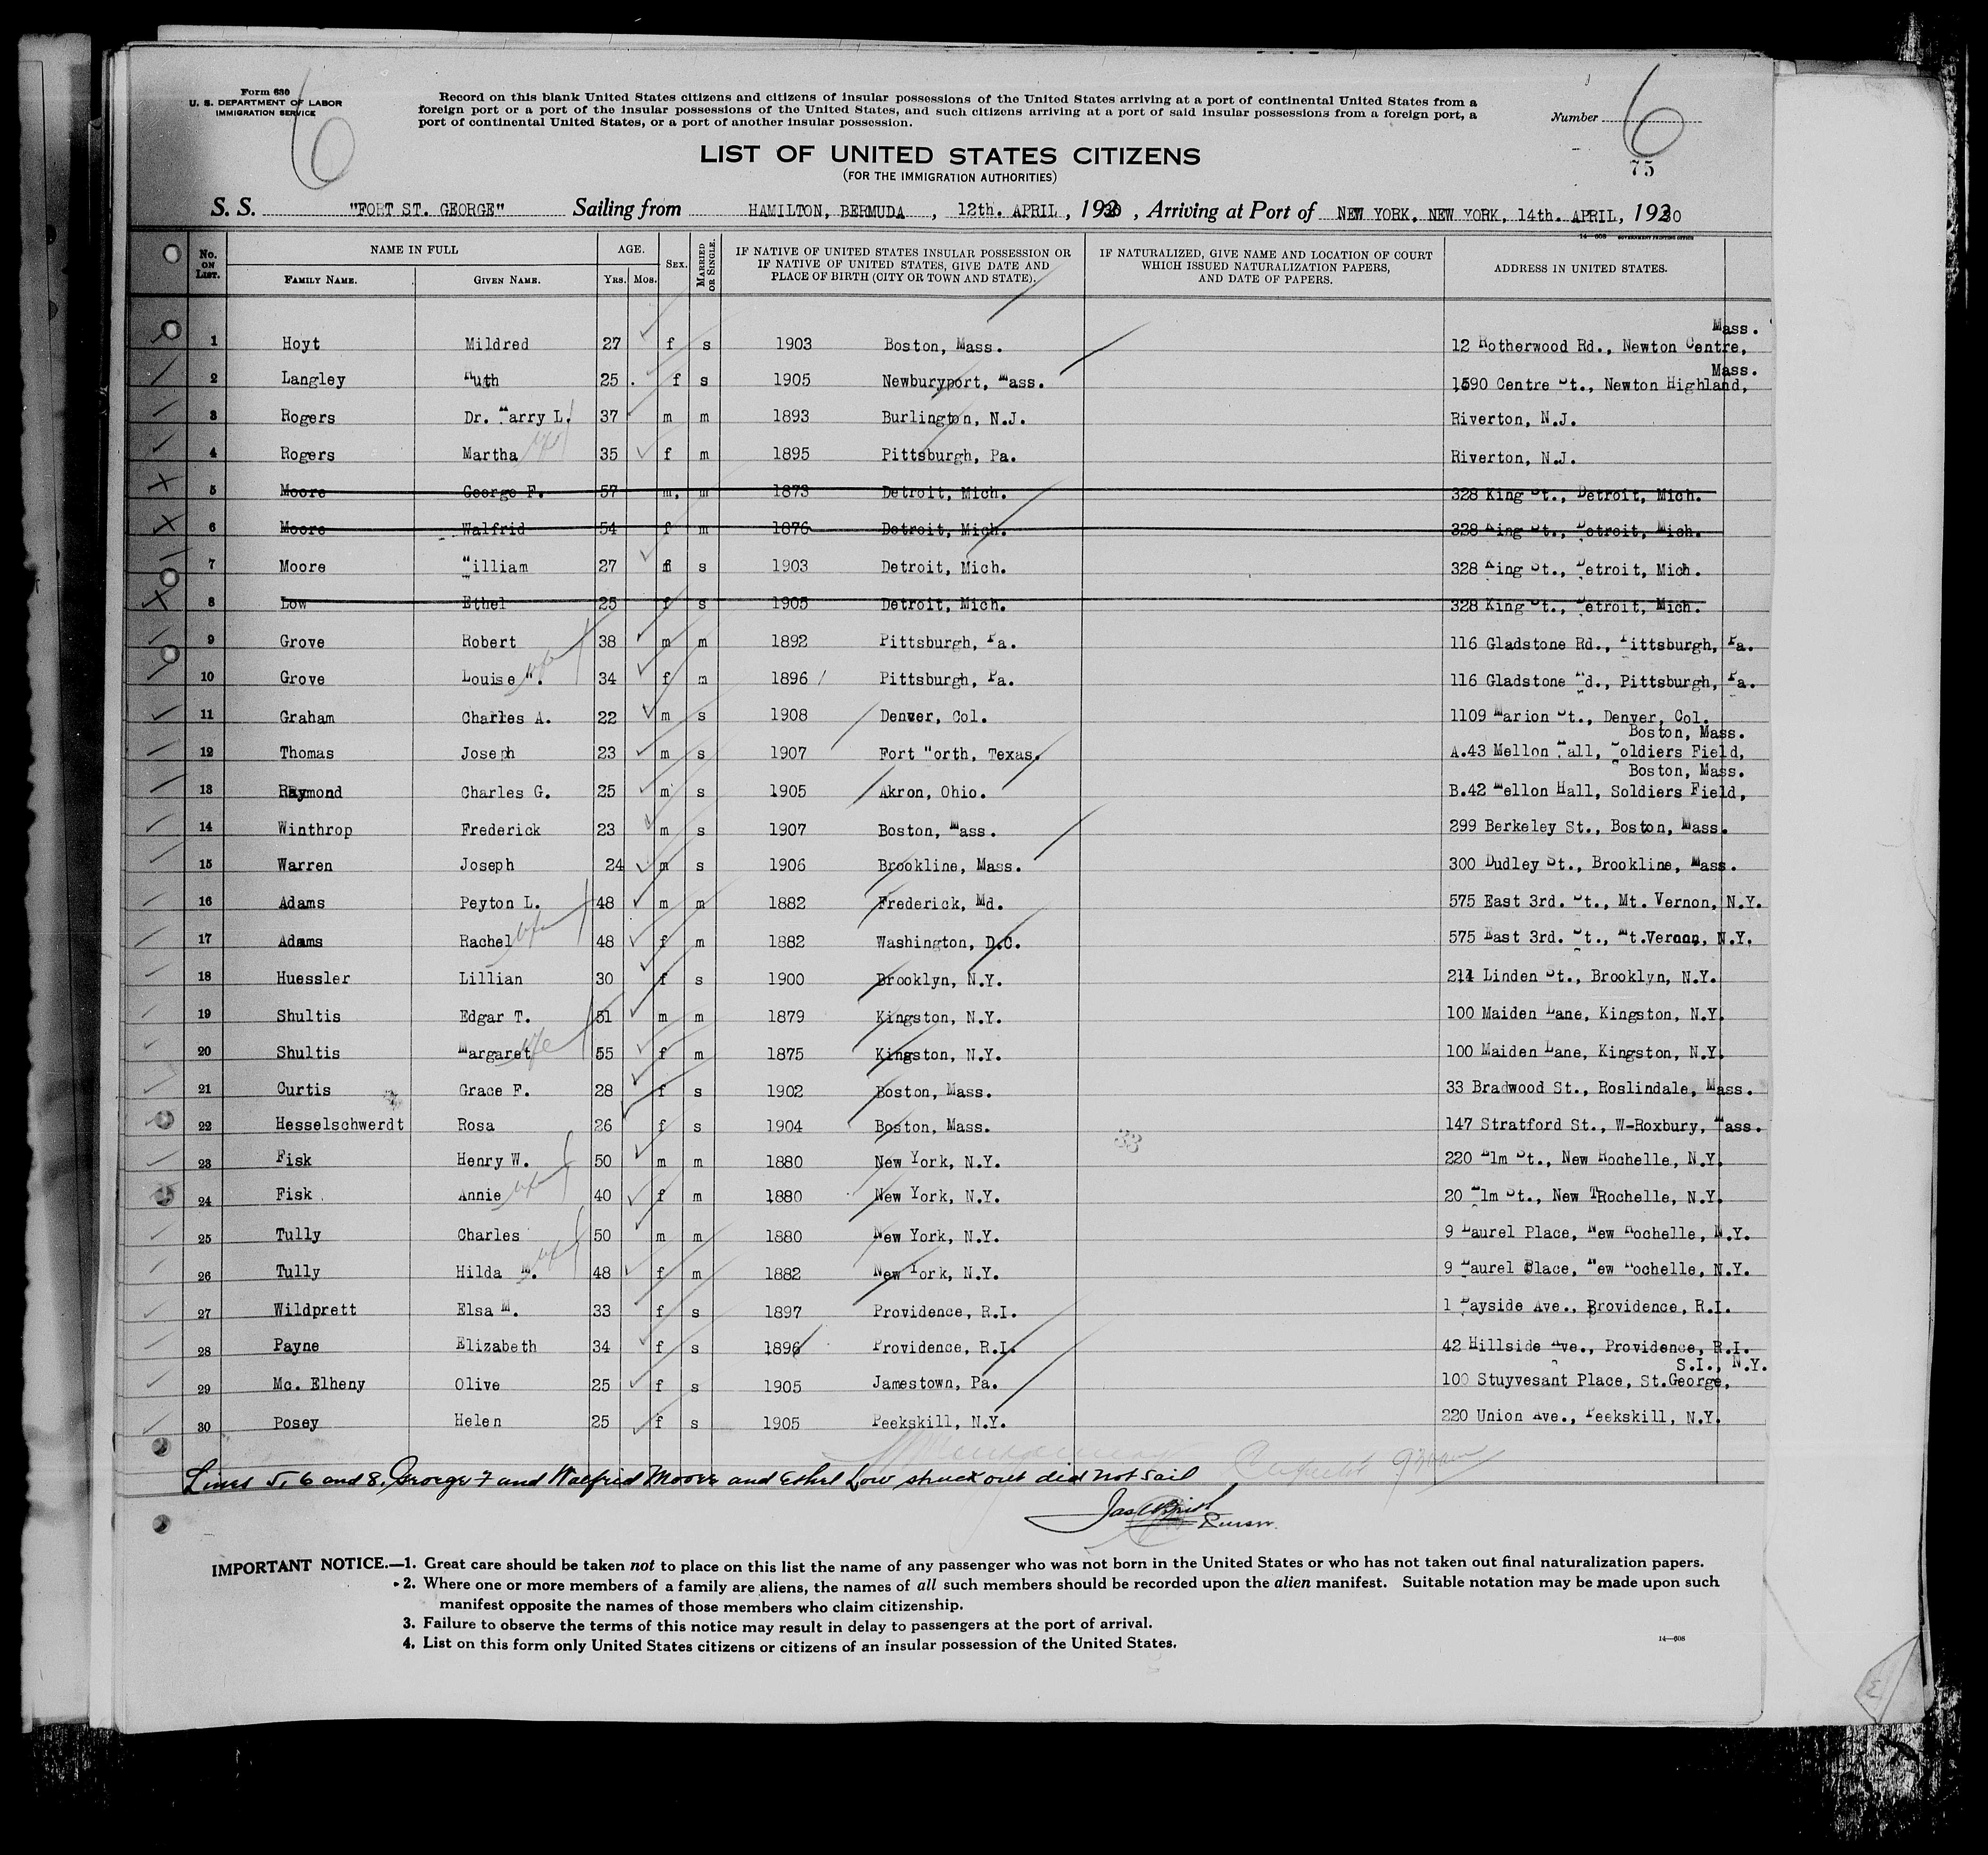 Form 630
U. S. DEPARTMENT OF LABOR
IMMIGRATION SERVICE
6
Record on this blank United States citizens and citizens of insular possessions of the United States arriving at a port of continental United States from a
foreign port or a port of the insular possessions of the United States, and such citizens arriving at a port of said insular possessions from a foreign port, a
port of continental United States, or a port of another insular possession.
Number 6
75
LIST OF UNITED STATES CITIZENS
(FOR THE IMMIGRATION AUTHORITIES)
S. S. "FORT ST. GEORGE" Sailing from HAMILTON, BERMUDA, 12th. APRIL, 1930, Arriving at Port of NEW YORK, NEW YORK, 14th. APRIL, 1930
14—608 GOVERNMENT PRINTING OFFICE
No. ON LIST. NAME IN FULL FAMILY NAME. GIVEN NAME. AGE. Yrs. Mos. SEX. MARRIED OR SINGLE. IF NATIVE OF UNITED STATES INSULAR POSSESSION OR IF NATIVE OF UNITED STATES, GIVE DATE AND PLACE OF BIRTH (CITY OR TOWN AND STATE). IF NATURALIZED, GIVE NAME AND LOCATION OF COURT WHICH ISSUED NATURALIZATION PAPERS, AND DATE OF PAPERS. ADDRESS IN UNITED STATES.
1 Hoyt Mildred 27 f s 1903 Boston, Mass. 12 Rotherwood Rd., Newton Centre, Mass.
2 Langley Ruth 25 . f s 1905 Newburyport, Mass. 1590 Centre St., Newton Highland, Mass.
3 Rogers Dr. Harry L. 37 m m 1893 Burlington, N.J. Riverton, N.J.
4 Rogers Martha wfe 35 f m 1895 Pittsburgh, Pa. Riverton, N.J.
5 Moore George F. 57 m. m 1873 Detroit, Mich. 328 King St., Detroit, Mich.
6 Moore Walfrid 54 f m 1876 Detroit, Mich. 328 King St., Detroit, Mich.
7 Moore William 27 s 1903 Detroit, Mich. 328 King St., Detroit, Mich.
8 Low Ethel 25 f s 1905 Detroit, Mich. 328 King St., Detroit, Mich.
9 Grove Robert 38 m m 1892 Pittsburgh, Pa. 116 Gladstone Rd., Pittsburgh, Pa.
10 Grove Louise W. wfe 34 f m 1896 Pittsburgh, Pa. 116 Gladstone Rd., Pittsburgh, Pa.
11 Graham Charles A. 22 m s 1908 Denver, Col. 1109 Marion St., Denver, Col.
12 Thomas Joseph 23 m s 1907 Fort Worth, Texas. A.43 Mellon Hall, Soldiers Field, Boston, Mass.
13 Raymond Charles G. 25 m s 1905 Akron, Ohio. B.42 Mellon Hall, Soldiers Field, Boston, Mass.
14 Winthrop Frederick 23 m s 1907 Boston, Mass. 299 Berkeley St., Boston, Mass.
15 Warren Joseph 24 m s 1906 Brookline, Mass. 300 Dudley St., Brookline, Mass.
16 Adams Peyton L. 48 m m 1882 Frederick, Md. 575 East 3rd. St., Mt. Vernon, N.Y.
17 Adams Rachel wfe 48 f m 1882 Washington, D.C. 575 East 3rd. St., Mt.Vernon, N.Y.
18 Huessler Lillian 30 f s 1900 Brooklyn, N.Y. 214 Linden St., Brooklyn, N.Y.
19 Shultis Edgar T. 51 m m 1879 Kingston, N.Y. 100 Maiden Lane, Kingston, N.Y.
20 Shultis Margaret wfe 55 f m 1875 Kingston, N.Y. 100 Maiden Lane, Kingston, N.Y.
21 Curtis Grace F. 28 f s 1902 Boston, Mass. 33 Bradwood St., Roslindale, Mass.
22 Hesselschwerdt Rosa 26 f s 1904 Boston, Mass. 147 Stratford St., W-Roxbury, Mass.
23 Fisk Henry W. 50 m m 1880 New York, N.Y. 220 Elm St., New Rochelle, N.Y.
24 Fisk Annie wfe 40 f m 1880 New York, N.Y. 20 Elm St., New Rochelle, N.Y.
25 Tully Charles 50 m m 1880 New York, N.Y. 9 Laurel Place, New Rochelle, N.Y.
26 Tully Hilda M. wfe 48 f m 1882 New York, N.Y. 9 Laurel Place, New Rochelle, N.Y.
27 Wildprett Elsa M. 33 f s 1897 Providence, R.I. 1 Bayside Ave., Providence, R.I.
28 Payne Elizabeth 34 f s 1896 Providence, R.I. 42 Hillside Ave., Providence, R.I.
29 Mc. Elheny Olive 25 f s 1905 Jamestown, Pa. 100 Stuyvesant Place, St.George, S.I., N.Y.
30 Posey Helen 25 f s 1905 Peekskill, N.Y. 220 Union Ave., Peekskill, N.Y.
Lines 5, 6 and 8, George F and Walfrid Moore and Ethel Low struck out did not sail
Purser.
IMPORTANT NOTICE.—1. Great care should be taken not to place on this list the name of any passenger who was not born in the United States or who has not taken out final naturalization papers.
2. Where one or more members of a family are aliens, the names of all such members should be recorded upon the alien manifest. Suitable notation may be made upon such
manifest opposite the names of those members who claim citizenship.
3. Failure to observe the terms of this notice may result in delay to passengers at the port of arrival.
4. List on this form only United States citizens or citizens of an insular possession of the United States.
14—608